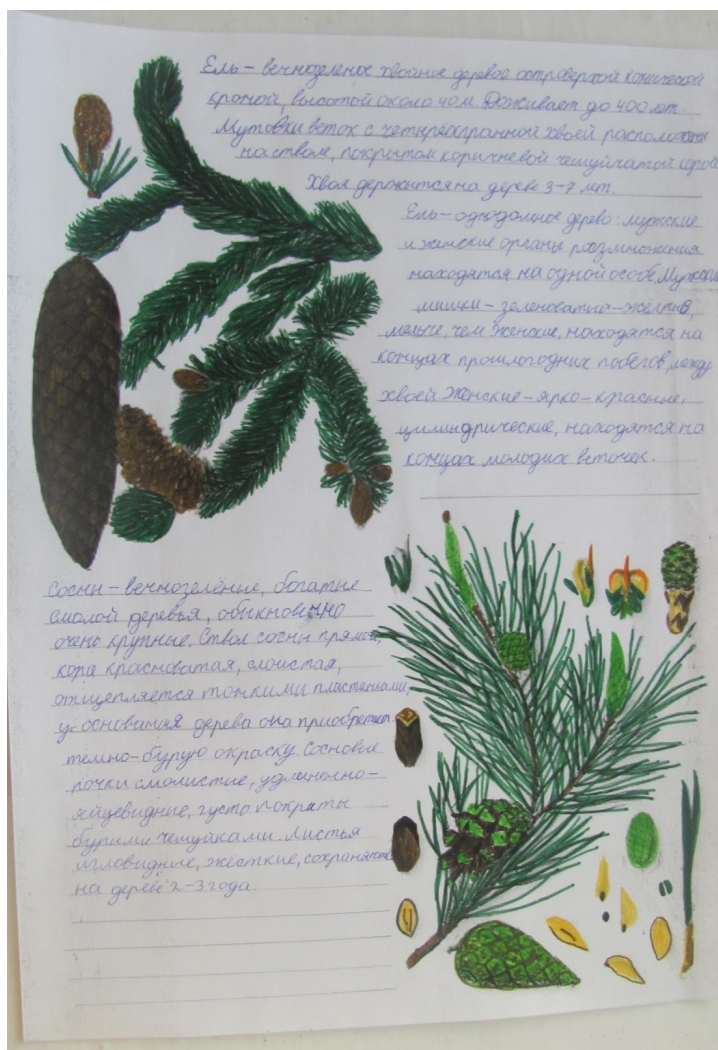 Ель – вечнозеленое хвойное дерево с островерхой конической
кроной, высотой около 40м. Доживает до 400 лет.
Мутовки веток с четырехгранной хвоей расположены
на стволе, покрытом коричневой чешуйчатой корой
Хвоя держится на дереве 3-7 лет.
Ель – однодомное дерево: мужские
и женские органы размножения
находятся на одной особи. Мужские
шишки – зеленовато-желтые,
мельче, чем женские, находятся на
концах прошлогодних побегов, между
хвоей. Женские – ярко-красные,
цилиндрические, находятся на
концах молодых веточек.
Сосны – вечнозелёные, богатые
смолой деревья, обыкновенно
очень крупные. Ствол сосны прямой,
кора красноватая, слоистая,
отщепляется тонкими пластинками,
у основания дерева она приобретает
темно-бурую окраску. Сосновые
почки смолистые, удлиненно-
яйцевидные, густо покрыты
бурыми чешуйками. Листья
игловидные, жесткие, сохраняются
на дереве 2-3 года.